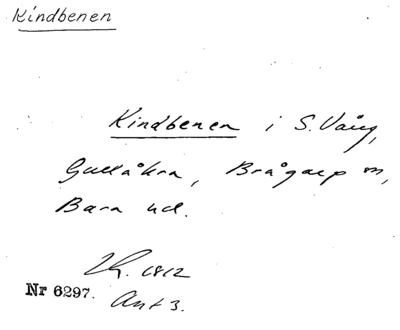 Kindbenen
Kindbenen i S. Vång,
Gullåkra, Brågarp sn,
Bara hd.
1812
Nr 6297.
Ant 3.